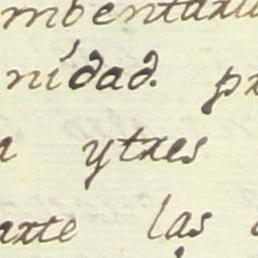 mbentaru
nidad. pr
a ytres
arte las